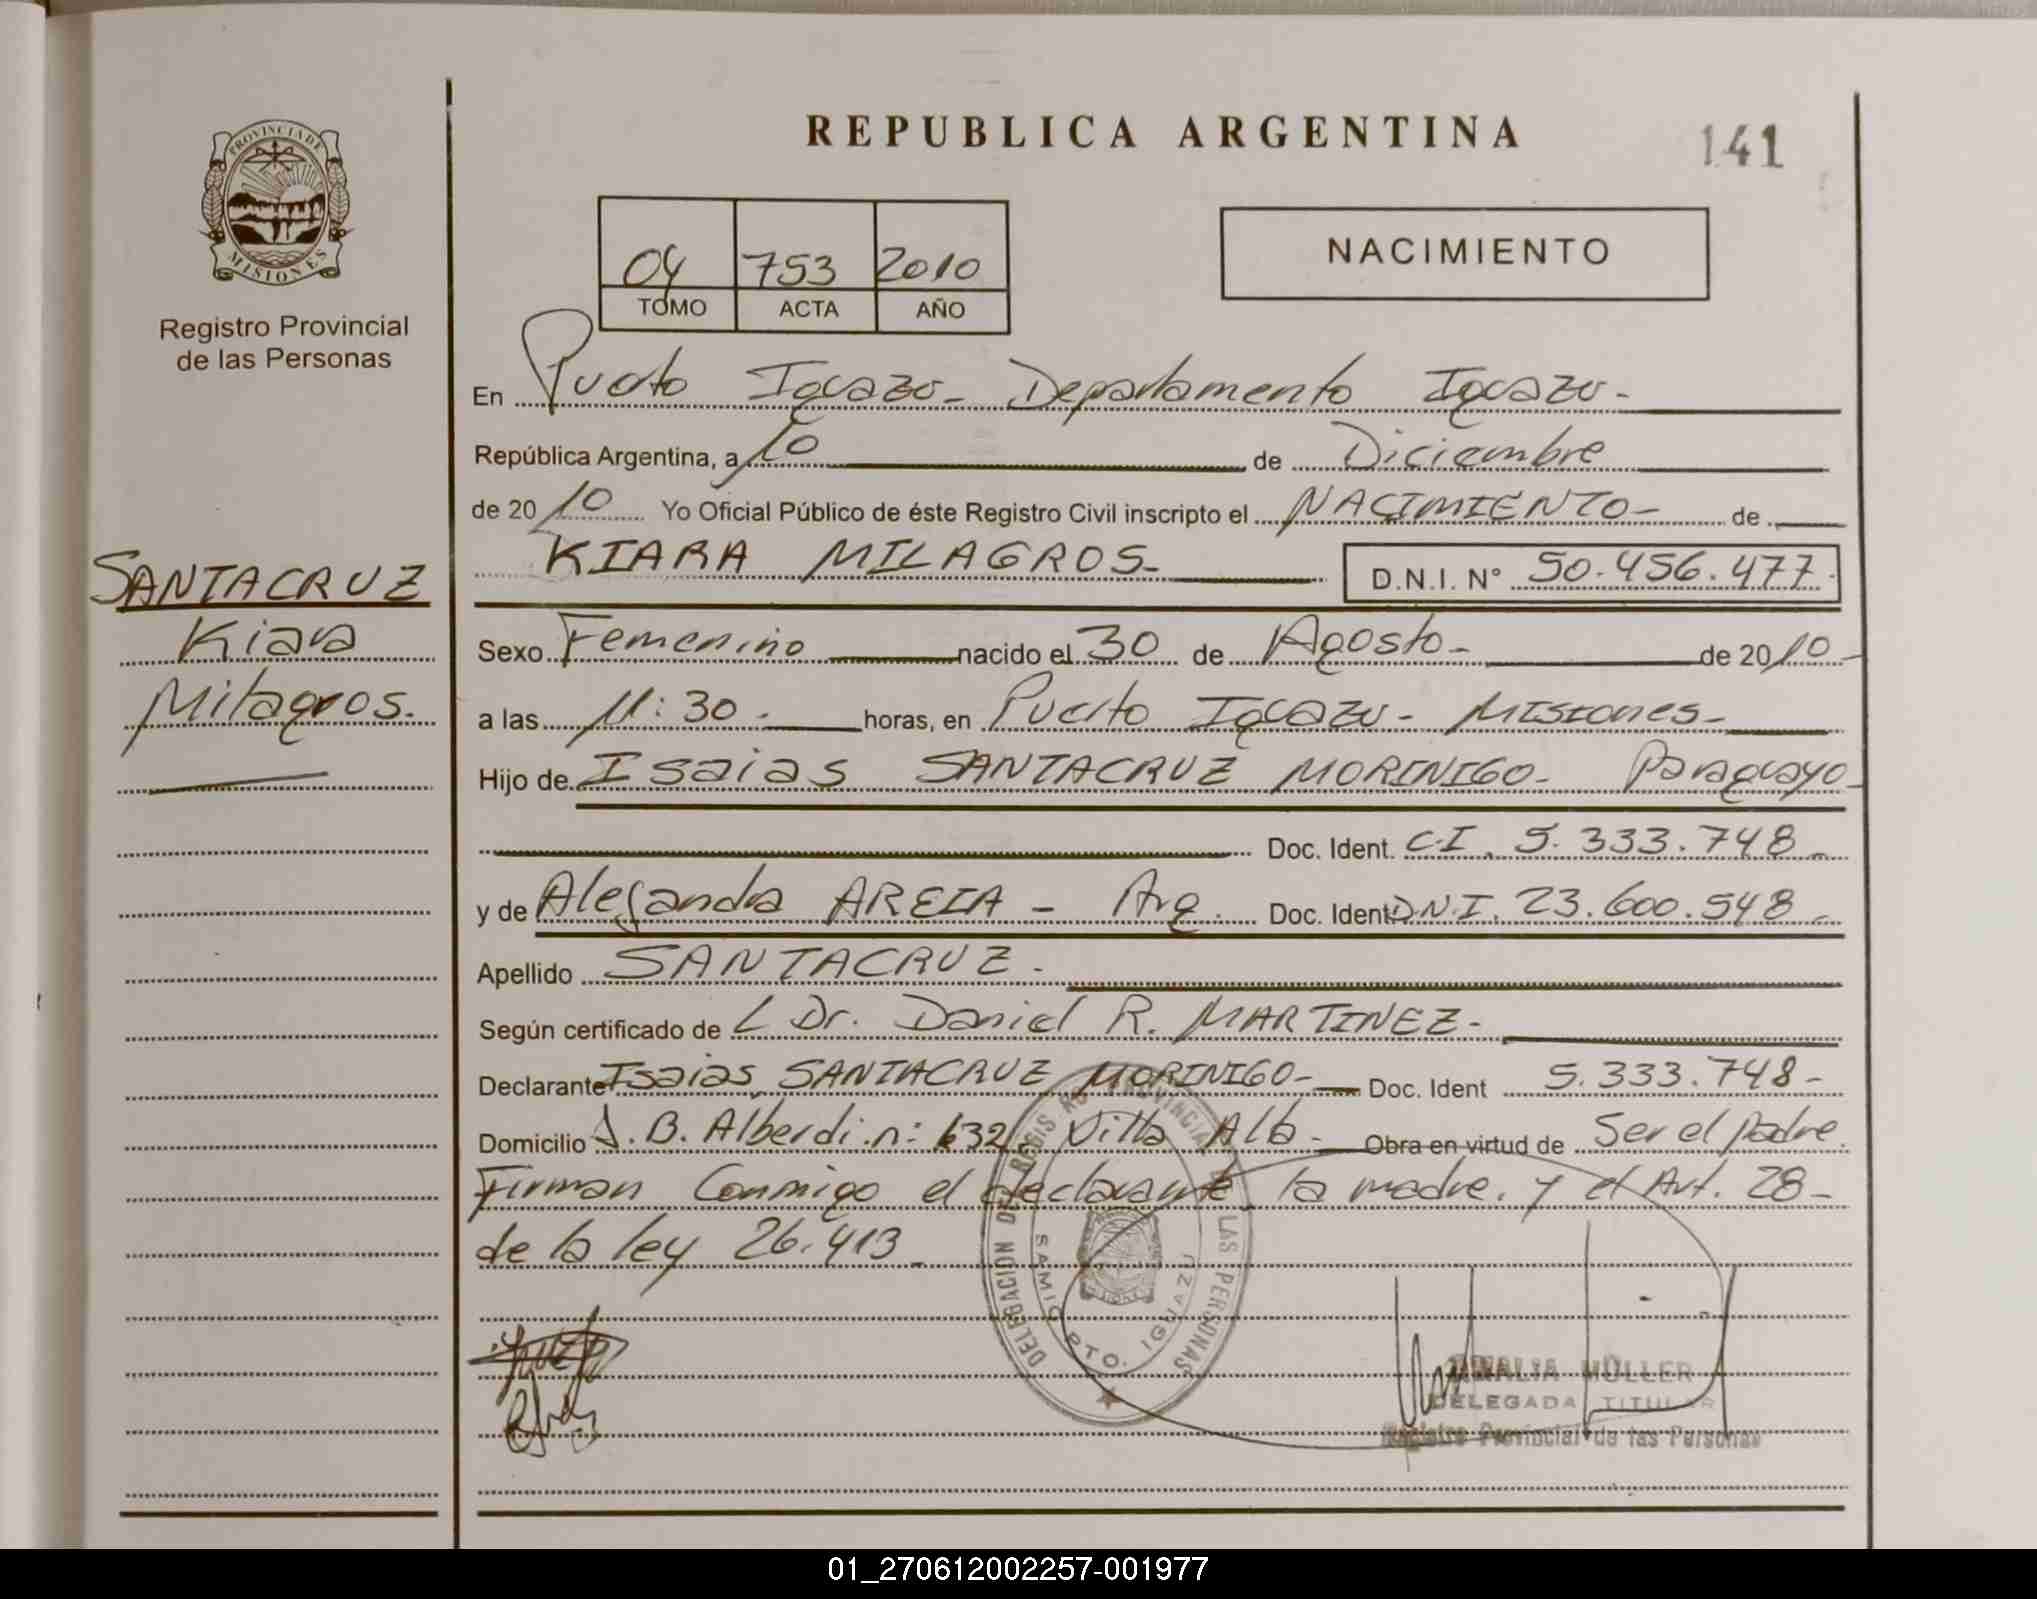 REPUBLICA ARGENTINA
141
PROVINCIA DE
MISIONES
Registro Provincial
de las Personas
04 753 2010
TOMO ACTA AÑO
NACIMIENTO
En Puerto Iguazu - Departamento Iguazu -
República Argentina, a 10 de Diciembre
de 20 10 Yo Oficial Público de éste Registro Civil inscripto el NACIMIENTO - de
KIARA MILAGROS - D.N.I. N° 50.456.477.
SANTACRUZ
Kiara
Milagros.
Sexo Femenino nacido el 30 de Agosto - de 20 10 -
a las 11:30 - horas, en Puerto Iguazu - Misiones -
Hijo de Isaias SANTACRUZ MORINIGO - Paraguayo -
Doc. Ident. C.I. 5.333.748 -
y de Alejandra AREIA - Arg. Doc. Ident. D.N.I. 23.600.548 -
Apellido SANTACRUZ -
Según certificado de Dr. Daniel R. MARTINEZ -
Declarante Isaias SANTACRUZ MORINIGO - Doc. Ident 5.333.748 -
Domicilio J. B. Alberdi n: 632 Villa Alta - Obra en virtud de Ser el padre.
Firman Conmigo el declarante, la madre. y el Art. 28 -
de la ley 26.413 -
DELEGACION DEL REGIS PROVINCIAL DE LAS PERSONAS
SAMIC PTO. IGUAZU
MÜLLER
DELEGADA TITULAR
Registro Provincial de las Personas
01_270612002257-001977